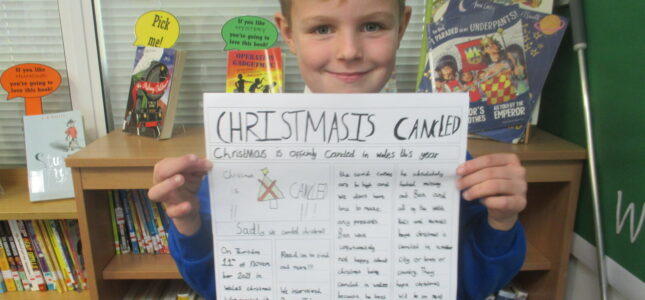 Pick
me!
If you like
mystery
you're going to
love this book!
If you like
you're going to
love this book!
OPERATION
GADGETMAN
UNDERPANTS!
THE
EMPEROR
CHRISTMAS IS CANCLED
Christmas is officaly Cancled in wales this year
Christmas
is
CANCLED
!!
!!
Sadly we cancled christmas!
On Thursday
11th of Novem
ber 2021 in
Wales christmas
Read on to find
out more!!!
We interviewed
the covid cases
are to high and
We dont have
time to make
any presents.
Ben was
unfortunately
not happy about
christmas being
cancled in wales
because he has
he absolutely
hated
Ben and
all of the world
hope christmas is
cancled in
city or town or
country. They
hope christmas
will be on next